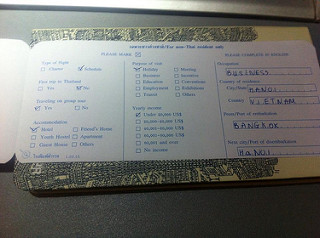 เฉพาะชาวต่างชาติ/For non-Thai resident only
PLEASE MARK
PLEASE COMPLETE IN ENGLISH
Type of flight
Charter Schedule
First trip to Thailand
Yes No
Traveling on group tour
Yes No
Accommodation
Hotel Friend's Home
Youth Hostel Apartment
Guest House Others
Purpose of visit
Holiday Meeting
Business Incentive
Education Convention
Employment Exhibition
Transit Others
Yearly income
Under 20,000 US$
20,000-40,000 US$
40,001-60,000 US$
60,001-80,000 US$
80,001 and over
No income
Occupation
BUSINESS
Country of residence
City/State HANOI
Country VIETNAM
From/Port of embarkation
BANGKOK
Next city/Port of disembarkation
HANOI